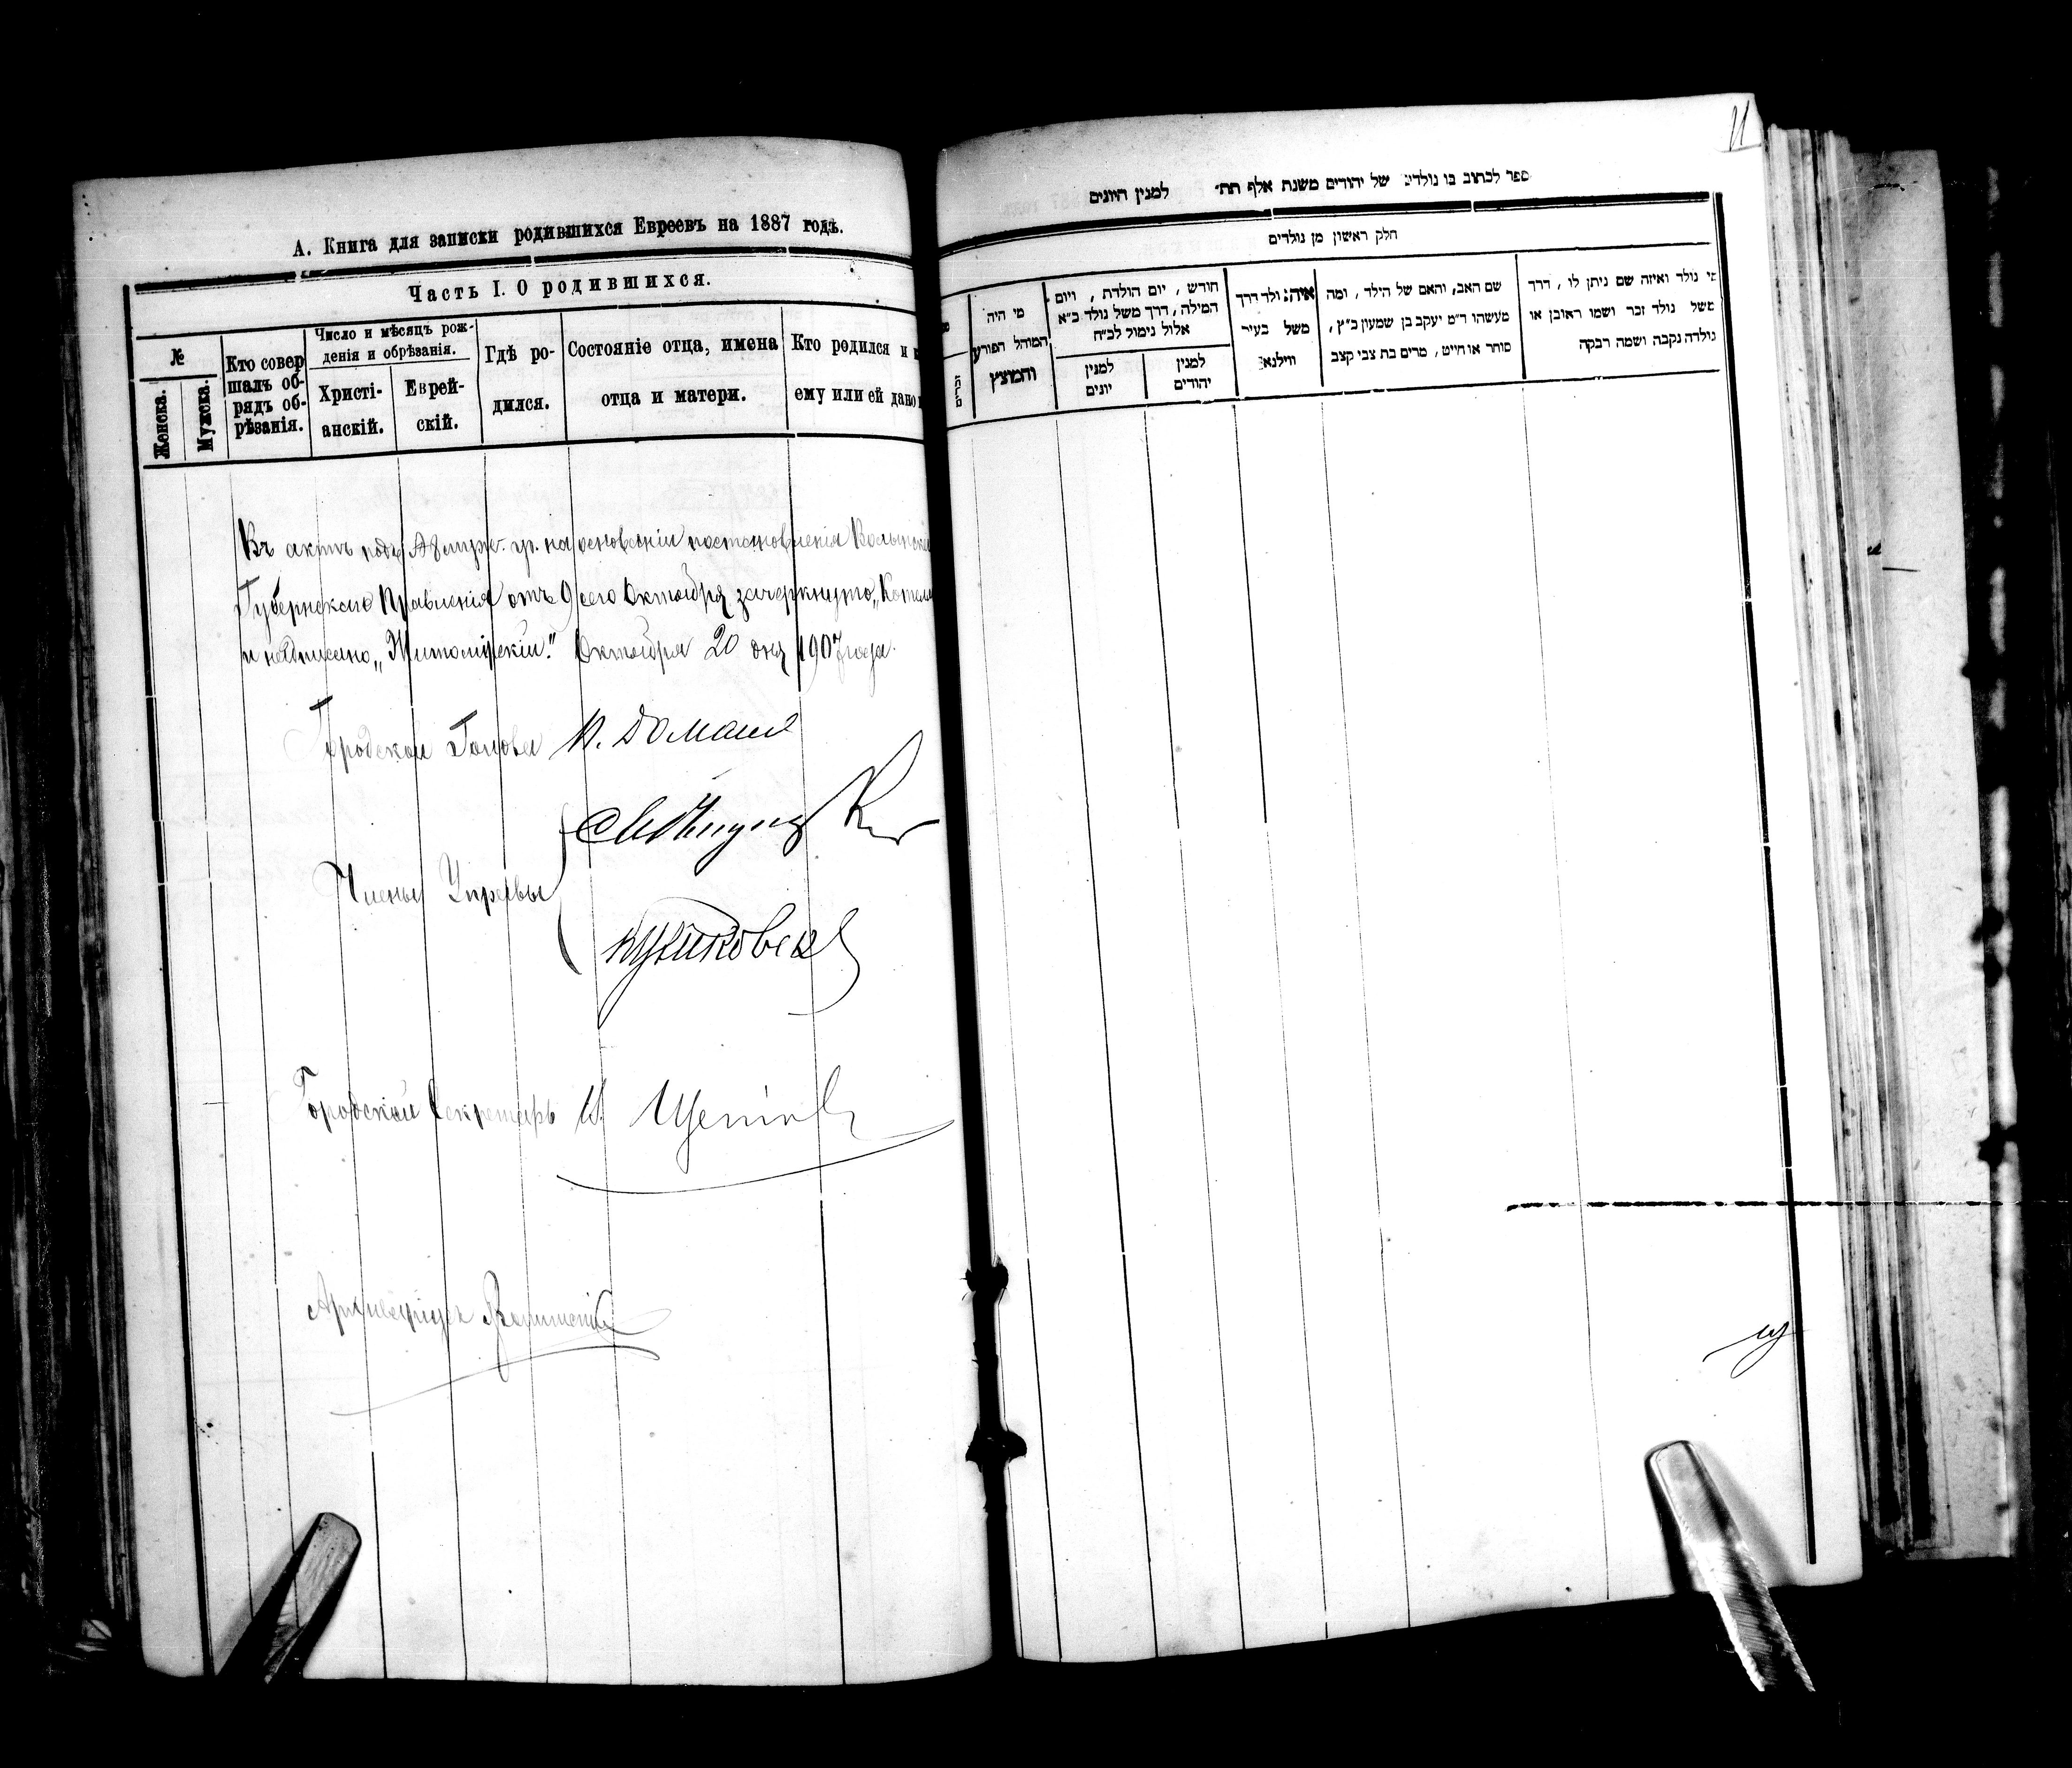 А. Книга для записки родившихся Евреевъ на 1887 годъ.
Часть I. О родившихся.
№
Женска.
Мужска.
Кто совер
шалъ об-
рядъ об-
рѣзанія.
Число и мѣсяцъ рож-
денія и обрѣзанія.
Христі-
анскій.
Еврей-
скій.
Гдѣ ро-
дился.
Состояніе отца, имена
отца и матери.
Кто родился и к
ему или ей дано
Въ актѣ подъ гр. на основаніи постановленія Волынска
Губернскаго Правленія отъ 9 сего Октября зачеркнуто
и надписано „Житомірскій." Октября 20 дня 1907 года.
Городской Голова
Члены Управы
Городской Секретарь
Архиваріусъ
11
ספר לכתוב בו נולדים של יהודים משנת אלף תת״ למנין היונים
חלק ראשון מן נולדים
זכרים
מי היה
המוהל הפורע
והמוצץ
חודש , יום הולדת , ויום
המילה, דרך משל נולד כ״א
אלול נימול לכ״ח
למנין
יונים
למנין
יהודים
איה נולד דרך
משל בעיר
ווילנא
שם האב, והאם של הילד , ומה
מעשהו ד״מ יעקב בן שמעון כ״ץ,
סוחר או חייט, מרים בת צבי קצב
מי נולד ואיזה שם ניתן לו , דרך
משל נולד זכר ושמו ראובן או
נולדה נקבה ושמה רבקה